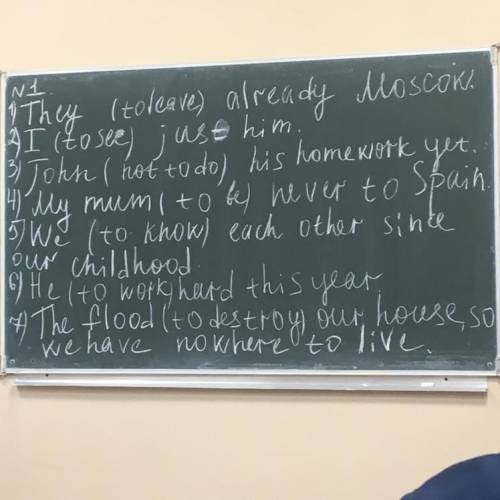 N1.
1) They (to leave) already Moscow.
2) I (to see) just him.
3) John (not to do) his homework yet.
4) My mum (to be) never to Spain.
5) We (to know) each other since
our childhood.
6) He (to work) hard this year.
7) The flood (to destroy) our house, so
we have nowhere to live.